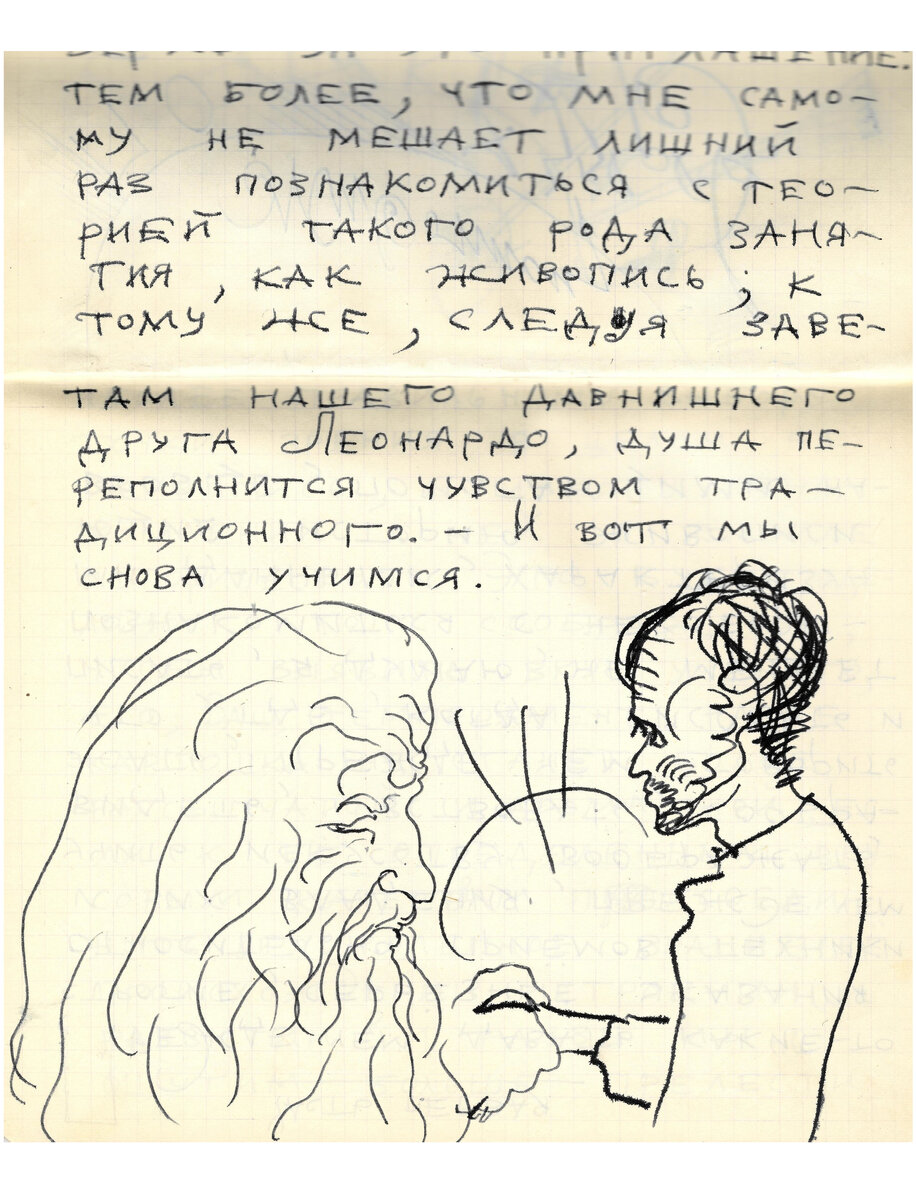 за это приглашение.
тем более, что мне само-
му не мешает лишний
раз познакомиться с тео-
рией такого рода заня-
тия, как живопись; к
тому же, следуя заве-
там нашего давнишнего
друга Леонардо, душа пе-
реполнится чувством тра-
диционного. – И вот мы
снова учимся.